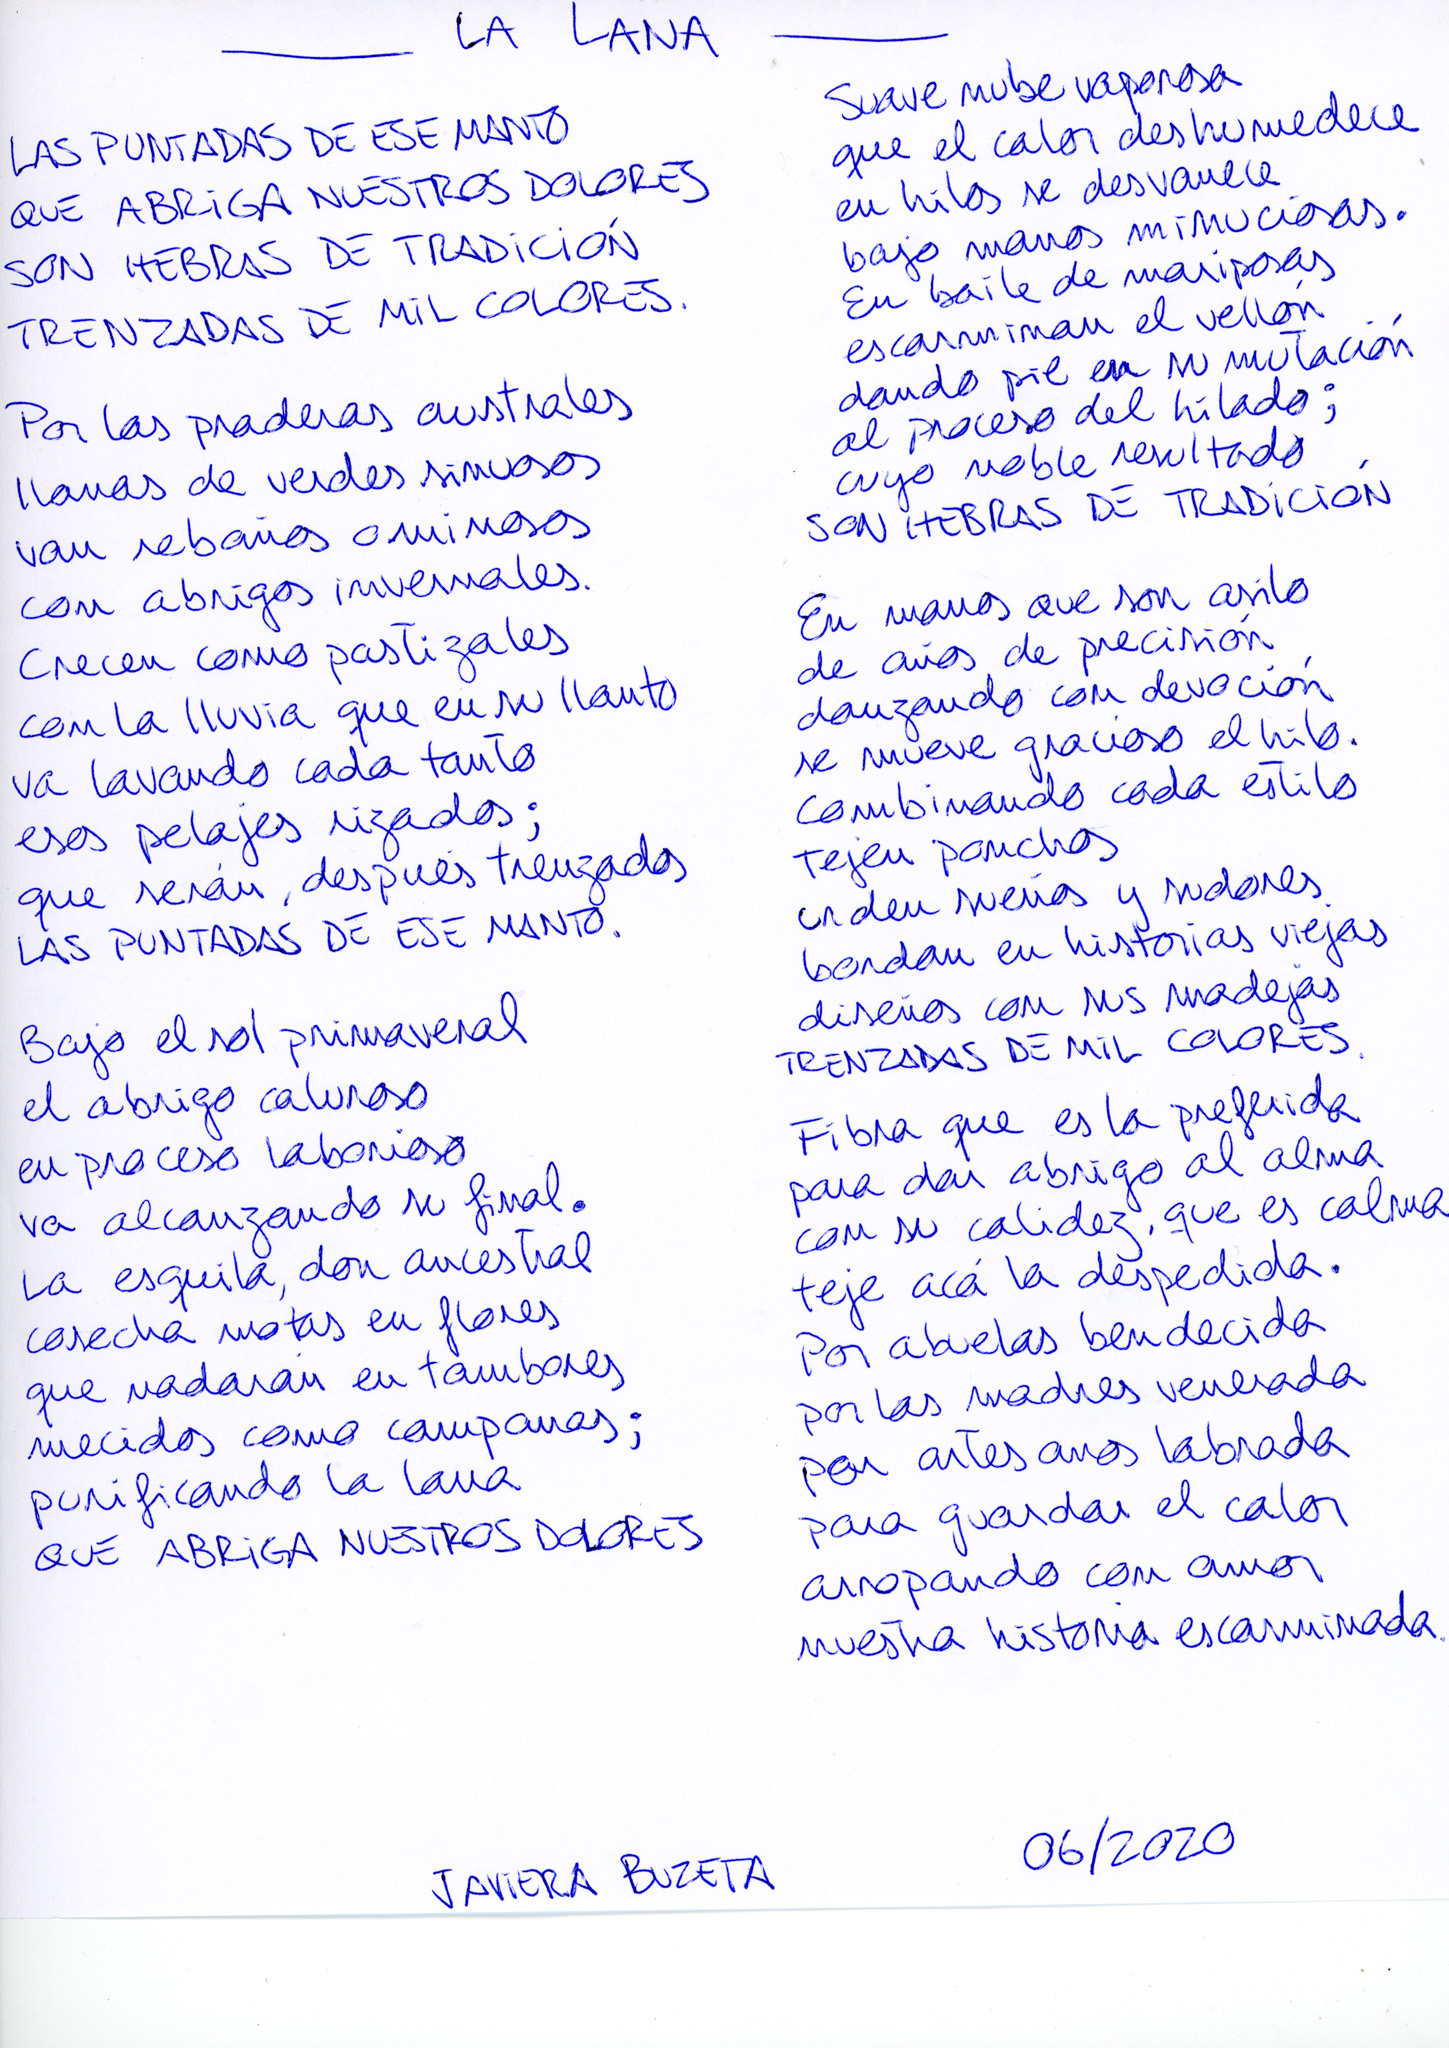 LA LANA
LAS PUNTADAS DE ESE MANTO
QUE ABRIGA NUESTROS DOLORES
SON HEBRAS DE TRADICIÓN
TRENZADAS DE MIL COLORES.
Por las praderas australes
llanas de verdes sinuosos
van rebaños ominosos
con abrigos invernales.
Crecen como pastizales
con la lluvia que en su llanto
va lavando cada tanto
esos pelajes rizados;
que serán, después trenzados
LAS PUNTADAS DE ESE MANTO.
Bajo el sol primaveral
el abrigo caluroso
en proceso laborioso
va alcanzando su final.
La esquila, don ancestral
cosecha motas en flores
que nadarán en tambores
mecidos como campanas;
purificando la lana
QUE ABRIGA NUESTROS DOLORES
Suave nube vaporosa
que el calor deshumedece
en hilos se desvanece
bajo manos minuciosas.
En baile de mariposas
escarminan el vellón
dando pie en su mutación
al proceso del hilado;
cuyo noble resultado
SON HEBRAS DE TRADICIÓN
En manos que son asilo
de años de precisión
danzando con devoción
se mueve gracioso el hilo.
Combinando cada estilo
tejen ponchos
urden sueños y sudores
bordan en historias viejas
diseños con sus madejas
TRENZADAS DE MIL COLORES.
Fibra que es la preferida
para dar abrigo al alma
con su calidez, que es calma
teje acá la despedida.
Por abuelas bendecida
por las madres venerada
por artesanos labrada
para guardar el calor
arropando con amor
nuestra historia escarminada.
JAVIERA BUZETA
06/2020